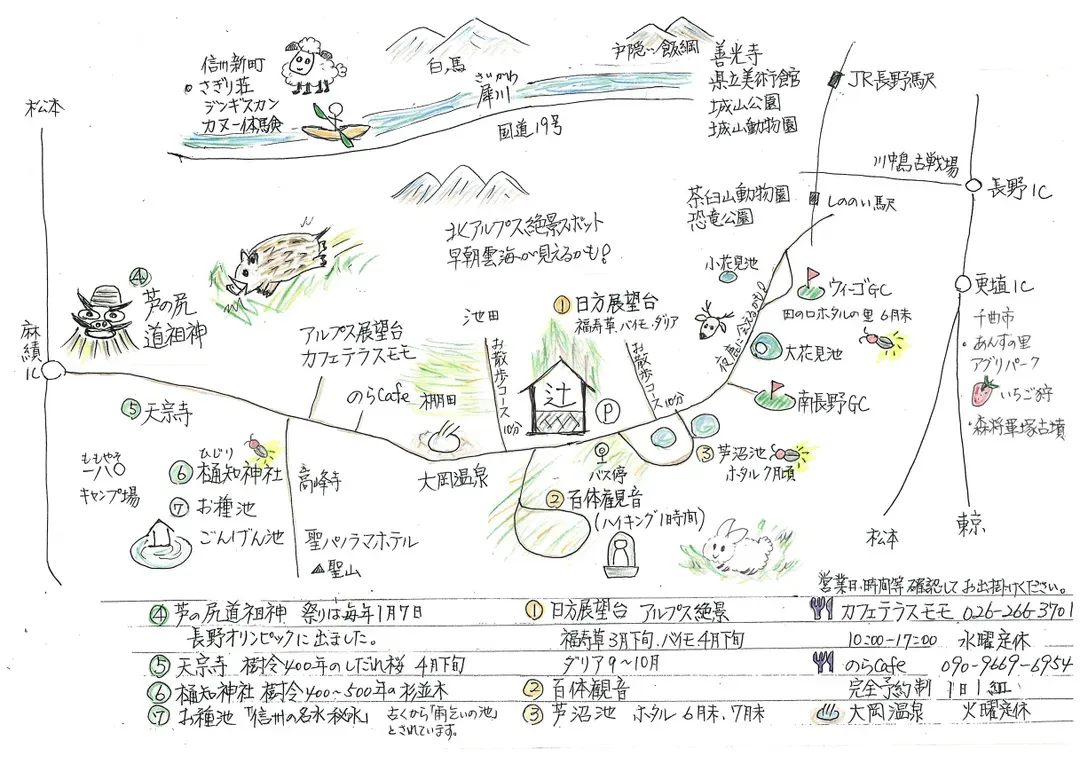 松本
信州新町
さぎり荘
ジンギスカン
カヌー体験
白馬
さいかわ
犀川
国道19号
戸隠
飯綱
善光寺
県立美術館
城山公園
城山動物園
JR長野駅
川中島古戦場
長野IC
茶臼山動物園
恐竜公園
しののい駅
北アルプス絶景スポット
早朝雲海が見えるかも!
小花見池
ウィーゴGC
田の口ホタルの里 6月末
更埴IC
千曲市
・あんずの里
アグリパーク
いちご狩
・森将軍塚古墳
④
芦の尻
道祖神
麻績
IC
アルプス展望台
カフェテラスモモ
のらCafe
池田
棚田
お散歩コース10分
①日方展望台
福寿草、バイモ、ダリア
辻
P
お散歩コース10分
夜鹿に会えるかも!
大花見池
南長野GC
⑤天宗寺
ひじり
⑥樋知神社
⑦お種池
ごんげん池
ももやそ
一八〇
キャンプ場
高峰寺
聖パノラマホテル
聖山
大岡温泉
バス停
②百体観音
(ハイキング1時間)
③芦沼池
ホタル7月頃
松本
東京
営業日・時間等確認してお出掛けください。
④芦の尻道祖神 祭りは毎年1月7日
長野オリンピックに出ました。
⑤天宗寺 樹令400年のしだれ桜 4月下旬
⑥樋知神社 樹令400~500年の杉並木
⑦お種池「信州の名水・秘水」 古くから「雨乞いの池」
とされています。
①日方展望台 アルプス絶景
福寿草3月下旬、バイモ4月下旬
ダリア9~10月
②百体観音
③芦沼池 ホタル 6月末、7月末
カフェテラスモモ 026-266-3701
10:00-17:00 水曜定休
のらCafe 090-9669-6954
完全予約制 1日1組
大岡温泉 火曜定休